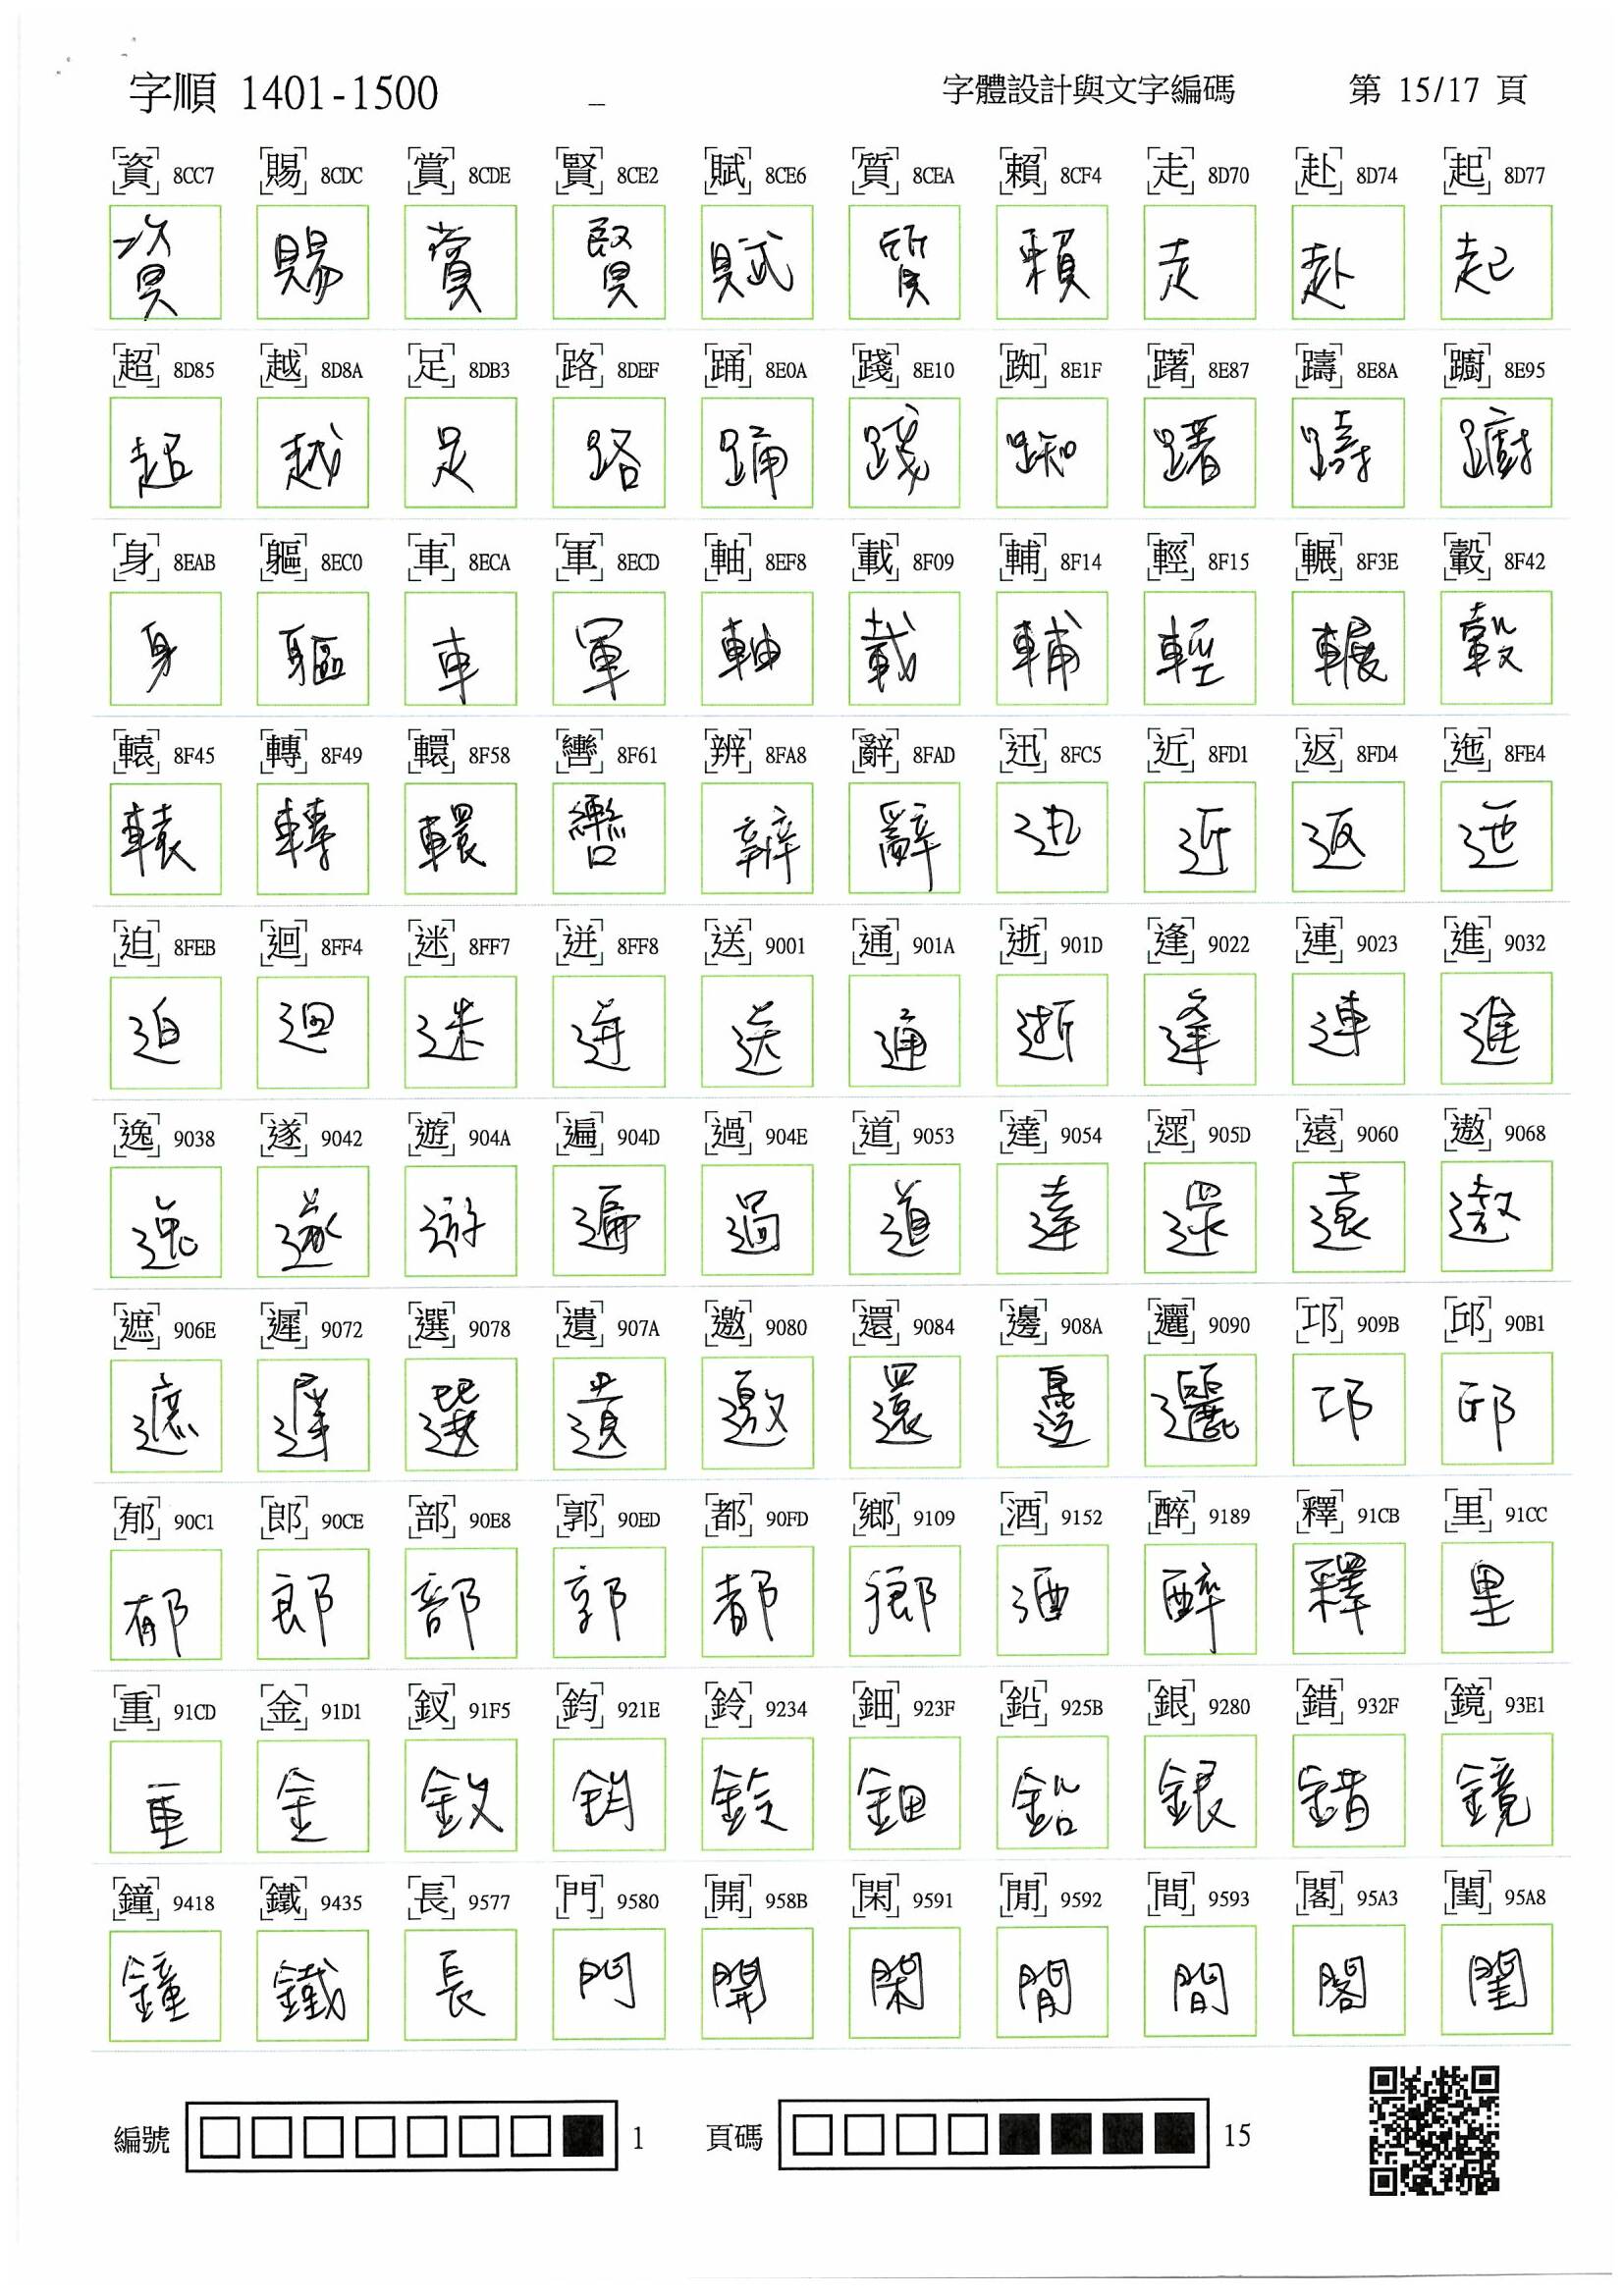 字順 1401-1500 字體設計與文字編碼 第 15/17 頁
資 8CC7 賜 8CDC 賞 8CDE 賢 8CE2 賦 8CE6 質 8CEA 賴 8CF4 走 8D70 赴 8D74 起 8D77
資 賜 賞 賢 賦 質 賴 走 赴 起
超 8D85 越 8D8A 足 8DB3 路 8DEF 踊 8E0A 踐 8E10 踟 8E1F 躇 8E87 躊 8E8A 躕 8E95
超 越 足 路 踊 踐 踟 躇 躊 躕
身 8EAB 軀 8EC0 車 8ECA 軍 8ECD 軸 8EF8 載 8F09 輔 8F14 輕 8F15 輾 8F3E 轂 8F42
身 軀 車 軍 軸 載 輔 輕 輾 轂
轅 8F45 轉 8F49 轘 8F58 轡 8F61 辨 8FA8 辭 8FAD 迅 8FC5 近 8FD1 返 8FD4 迤 8FE4
轅 轉 轘 轡 辨 辭 迅 近 返 迤
迫 8FEB 迴 8FF4 迷 8FF7 迸 8FF8 送 9001 通 901A 逝 901D 逢 9022 連 9023 進 9032
迫 迴 迷 迸 送 通 逝 逢 連 進
逸 9038 遂 9042 遊 904A 遍 904D 過 904E 道 9053 達 9054 遝 905D 遠 9060 遨 9068
逸 遂 遊 遍 過 道 達 遝 遠 遨
遮 906E 遲 9072 選 9078 遺 907A 邀 9080 還 9084 邊 908A 邐 9090 邛 909B 邱 90B1
遮 遲 選 遺 邀 還 邊 邐 邛 邱
郁 90C1 郎 90CE 部 90E8 郭 90ED 都 90FD 鄉 9109 酒 9152 醉 9189 釋 91CB 里 91CC
郁 郎 部 郭 都 鄉 酒 醉 釋 里
重 91CD 金 91D1 釵 91F5 鈞 921E 鈴 9234 鈿 923F 鉛 925B 銀 9280 錯 932F 鏡 93E1
重 金 釵 鈞 鈴 鈿 鉛 銀 錯 鏡
鐘 9418 鐵 9435 長 9577 門 9580 開 958B 閑 9591 閒 9592 間 9593 閣 95A3 閨 95A8
鐘 鐵 長 門 開 閑 閒 間 閣 閨
編號 1 頁碼 15